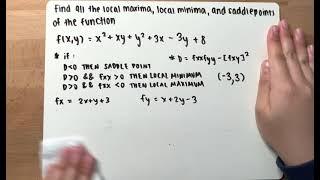 Find all the local maxima, local minima, and saddlepoints
of the function
f(x,y) = x² + xy + y² + 3x - 3y + 8
* if: * D = fxxfyy - [fxy]²
D<0 THEN SADDLE POINT
D>0 && fxx >0 THEN LOCAL MINIMUM (-3,3)
D>0 && fxx <0 THEN LOCAL MAXIMUM
fx = 2x+y+3 fy = x+2y-3